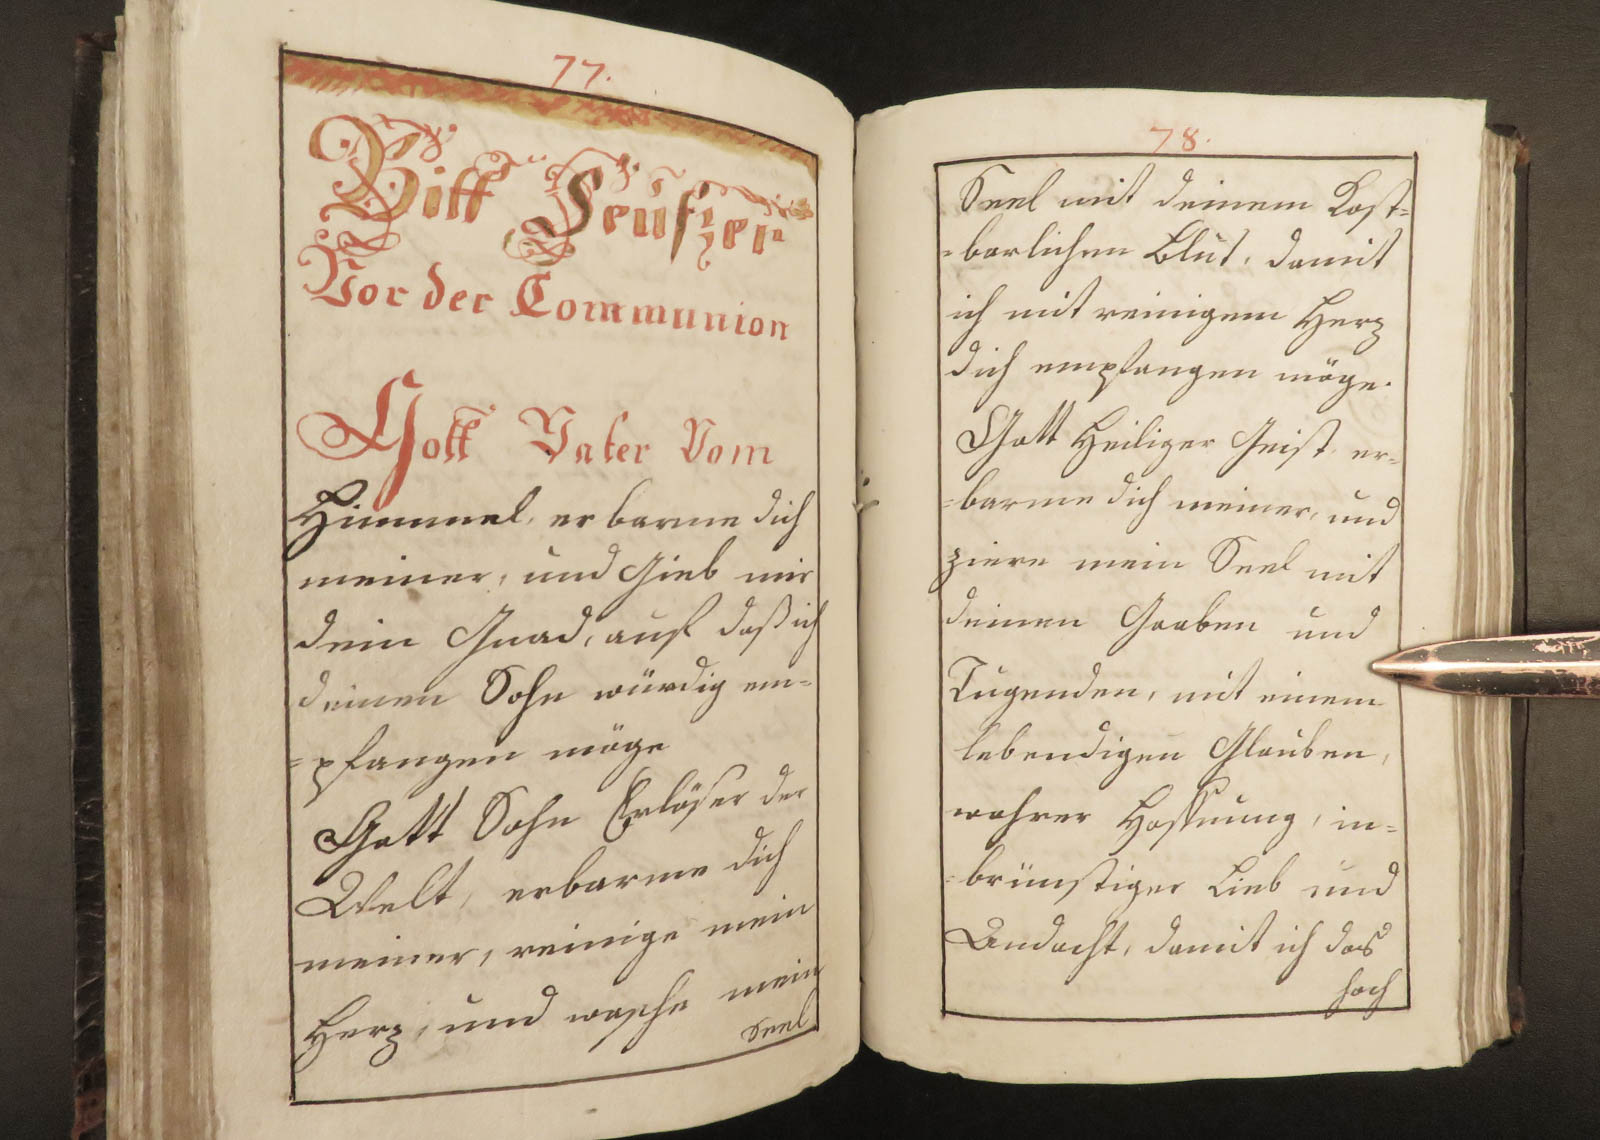 77.
Bitt Seufzer
Vor der Communion
Gott Vater Vom
Himmel, erbarme dich
meiner, und Gieb mir
dein Gnad, auf daß ich
deinen Sohn würdig em=
=pfangen möge
Gott Sohn Erlöser der
Welt, erbarme dich
meiner, reinige mein
Herz, und wasche mein
Seel
78.
Seel mit deinem Kost=
=barlichen Blut, damit
ich mit reinigem Herz
dich empfangen möge.
Gott Heiliger Geist, er=
=barme dich meiner, und
ziere mein Seel mit
deinen Gaaben und
Tugenden, mit einem
lebendigen Glauben,
wahrer Hoffnung, in=
=brünstiger Lieb und
Andacht, damit ich das
hoch